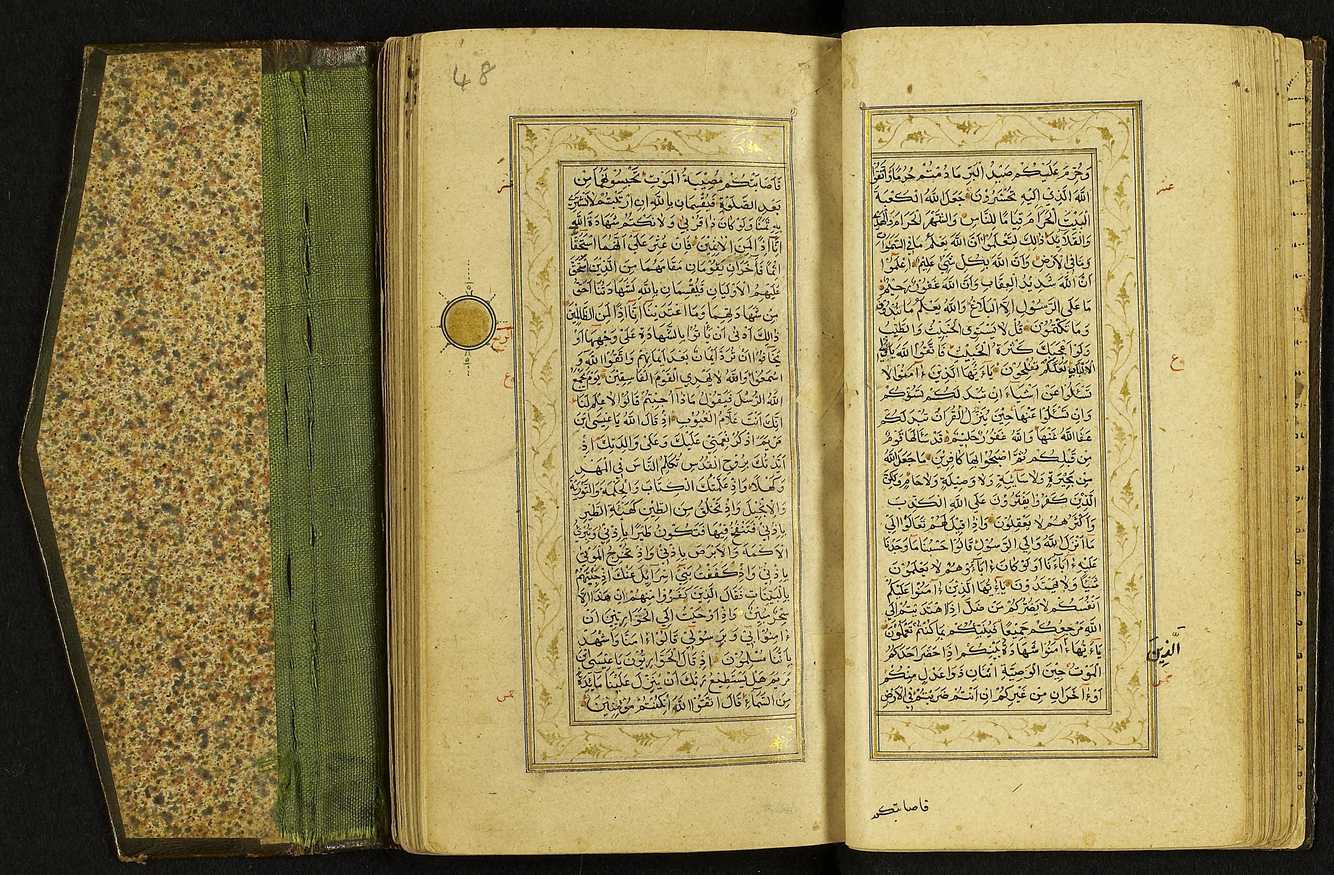 وَحُرِّمَ عَلَيْكُمْ صَيْدُ الْبَرِّ مَا دُمْتُمْ حُرُمًا وَاتَّقُوا
اللَّهَ الَّذِي إِلَيْهِ تُحْشَرُونَ جَعَلَ اللَّهُ الْكَعْبَةَ
الْبَيْتَ الْحَرَامَ قِيَامًا لِلنَّاسِ وَالشَّهْرَ الْحَرَامَ وَالْهَدْيَ
وَالْقَلَائِدَ ذَالِكَ لِتَعْلَمُوا أَنَّ اللَّهَ يَعْلَمُ مَا فِي السَّمَوَاتِ
وَمَا فِي الْأَرْضِ وَأَنَّ اللَّهَ بِكُلِّ شَيْءٍ عَلِيمٌ اعْلَمُوا
أَنَّ اللَّهَ شَدِيدُ الْعِقَابِ وَأَنَّ اللَّهَ غَفُورٌ رَحِيمٌ
مَا عَلَى الرَّسُولِ إِلَّا الْبَلَاغُ وَاللَّهُ يَعْلَمُ مَا تُبْدُونَ
وَمَا تَكْتُمُونَ قُلْ لَا يَسْتَوِي الْخَبِيثُ وَالطَّيِّبُ
وَلَوْ أَعْجَبَكَ كَثْرَةُ الْخَبِيثِ فَاتَّقُوا اللَّهَ يَا أُولِي
الْأَلْبَابِ لَعَلَّكُمْ تُفْلِحُونَ يَاءَيُّهَا الَّذِينَ ءَامَنُوا لَا
تَسْئَلُوا عَنْ أَشْيَاءَ إِنْ تُبْدَ لَكُمْ تَسُؤْكُمْ
وَإِنْ تَسْئَلُوا عَنْهَا حِينَ يُنَزَّلُ الْقُرْآنُ تُبْدَ لَكُمْ
عَفَا اللَّهُ عَنْهَا وَاللَّهُ غَفُورٌ حَلِيمٌ قَدْ سَأَلَهَا قَوْمٌ
مِنْ قَبْلِكُمْ ثُمَّ أَصْبَحُوا بِهَا كَافِرِينَ مَا جَعَلَ اللَّهُ
مِنْ بَحِيرَةٍ وَلَا سَائِبَةٍ وَلَا وَصِيلَةٍ وَلَا حَامٍ وَلَكِنَّ
الَّذِينَ كَفَرُوا يَفْتَرُونَ عَلَى اللَّهِ الْكَذِبَ
وَأَكْثَرُهُمْ لَا يَعْقِلُونَ وَإِذَا قِيلَ لَهُمْ تَعَالَوْا إِلَى
مَا أَنْزَلَ اللَّهُ وَإِلَى الرَّسُولِ قَالُوا حَسْبُنَا مَا وَجَدْنَا
عَلَيْهِ ءَابَاءَنَا أَوَلَوْ كَانَ ءَابَاؤُهُمْ لَا يَعْلَمُونَ
شَيْئًا وَلَا يَهْتَدُونَ يَاءَيُّهَا الَّذِينَ ءَامَنُوا عَلَيْكُمْ
أَنْفُسَكُمْ لَا يَضُرُّكُمْ مَنْ ضَلَّ إِذَا اهْتَدَيْتُمْ إِلَى
اللَّهِ مَرْجِعُكُمْ جَمِيعًا فَيُنَبِّئُكُمْ بِمَا كُنْتُمْ تَعْمَلُونَ
يَاءَيُّهَا ءَامَنُوا شَهَادَةُ بَيْنِكُمْ إِذَا حَضَرَ أَحَدَكُمُ
الَّذِينَ
الْمَوْتُ حِينَ الْوَصِيَّةِ اثْنَانِ ذَوَا عَدْلٍ مِنْكُمْ
أَوْ ءَاخَرَانِ مِنْ غَيْرِكُمْ إِنْ أَنْتُمْ ضَرَبْتُمْ فِي الْأَرْضِ
فاصابتكم
48
فَأَصَابَتْكُمْ مُصِيبَةُ الْمَوْتِ تَحْبِسُونَهُمَا مِنْ
بَعْدِ الصَّلَوةِ فَيُقْسِمَانِ بِاللَّهِ إِنِ ارْتَبْتُمْ لَا نَشْتَرِي
بِهِ ثَمَنًا وَلَوْ كَانَ ذَا قُرْبَى وَلَا نَكْتُمُ شَهَادَةَ اللَّهِ
إِنَّا إِذًا لَمِنَ الْآثِمِينَ فَإِنْ عُثِرَ عَلَى أَنَّهُمَا اسْتَحَقَّا
إِثْمًا فَآخَرَانِ يَقُومَانِ مَقَامَهُمَا مِنَ الَّذِينَ اسْتَحَقَّ
عَلَيْهِمُ الْأَوْلَيَانِ فَيُقْسِمَانِ بِاللَّهِ لَشَهَادَتُنَا أَحَقُّ
مِنْ شَهَادَتِهِمَا وَمَا اعْتَدَيْنَا إِنَّا إِذًا لَمِنَ الظَّالِمِينَ
ذَالِكَ أَدْنَى أَنْ يَأْتُوا بِالشَّهَادَةِ عَلَى وَجْهِهَا أَوْ
يَخَافُوا أَنْ تُرَدَّ أَيْمَانٌ بَعْدَ أَيْمَانِهِمْ وَاتَّقُوا اللَّهَ وَ
اسْمَعُوا وَاللَّهُ لَا يَهْدِي الْقَوْمَ الْفَاسِقِينَ يَوْمَ يَجْمَعُ
اللَّهُ الرُّسُلَ فَيَقُولُ مَاذَا أُجِبْتُمْ قَالُوا لَا عِلْمَ لَنَا
إِنَّكَ أَنْتَ عَلَّامُ الْغُيُوبِ إِذْ قَالَ اللَّهُ يَا عِيسَى ابْنَ
مَرْيَمَ اذْكُرْ نِعْمَتِي عَلَيْكَ وَعَلَى وَالِدَتِكَ إِذْ
أَيَّدْتُكَ بِرُوحِ الْقُدُسِ تُكَلِّمُ النَّاسَ فِي الْمَهْدِ
وَكَهْلًا وَإِذْ عَلَّمْتُكَ الْكِتَابَ وَالْحِكْمَةَ وَالتَّوْرَيةَ
وَالْإِنْجِيلَ وَإِذْ تَخْلُقُ مِنَ الطِّينِ كَهَيْئَةِ الطَّيْرِ
بِإِذْنِي فَتَنْفُخُ فِيهَا فَتَكُونُ طَيْرًا بِإِذْنِي وَتُبْرِئُ
الْأَكْمَهَ وَالْأَبْرَصَ بِإِذْنِي وَإِذْ تُخْرِجُ الْمَوْتَى
بِإِذْنِي وَإِذْ كَفَفْتُ بَنِي إِسْرَائِلَ عَنْكَ إِذْ جِئْتَهُمْ
بِالْبَيِّنَاتِ فَقَالَ الَّذِينَ كَفَرُوا مِنْهُمْ إِنْ هَذَا إِلَّا
سِحْرٌ مُبِينٌ وَإِذْ أَوْحَيْتُ إِلَى الْحَوَارِيِّينَ أَنْ
ءَامِنُوا بِي وَبِرَسُولِي قَالُوا ءَامَنَّا وَاشْهَدْ
بِأَنَّنَا مُسْلِمُونَ إِذْ قَالَ الْحَوَارِيُّونَ يَا عِيسَى ابْنَ
مَرْيَمَ هَلْ يَسْتَطِيعُ رَبُّكَ أَنْ يُنَزِّلَ عَلَيْنَا مَائِدَةً
مِنَ السَّمَاءِ قَالَ اتَّقُوا اللَّهَ إِنْ كُنْتُمْ مُؤْمِنِينَ